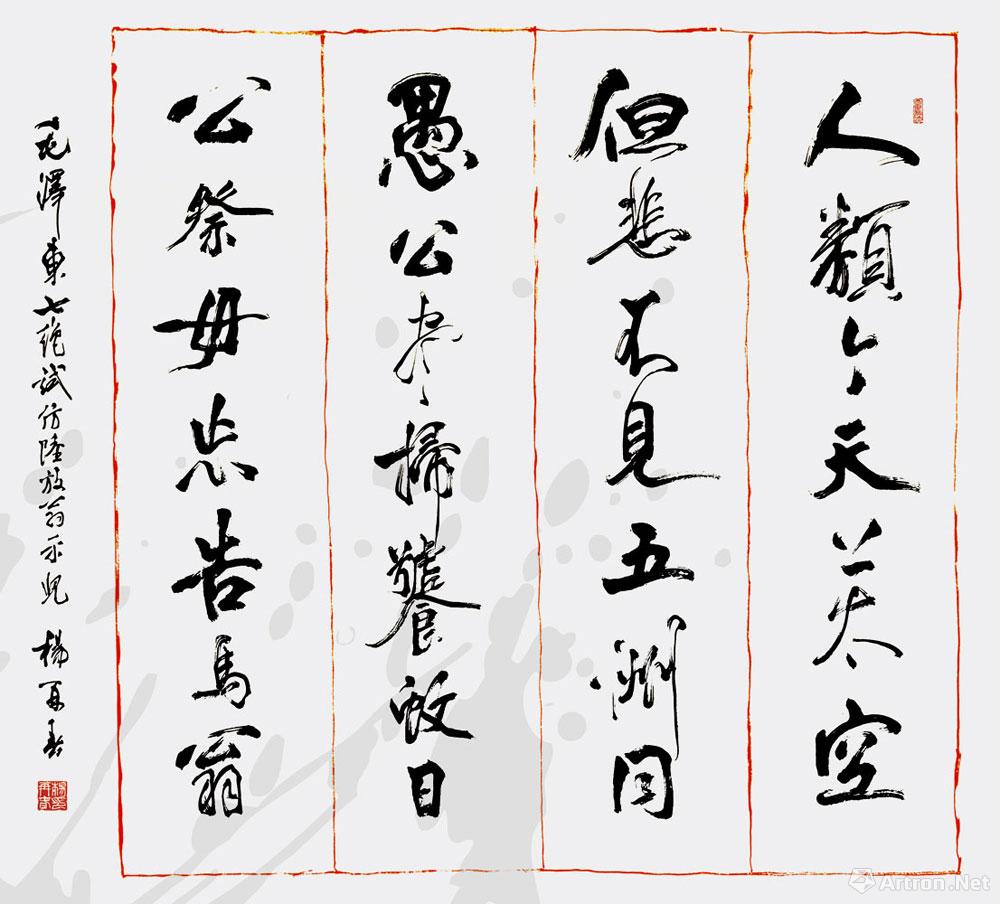 人類今天上太空
但悲不見五洲同
愚公尽掃饕蚊日
公祭毋忘告馬翁
毛澤東七絕試仿陸放翁示兒 楊再春
Artron.Net